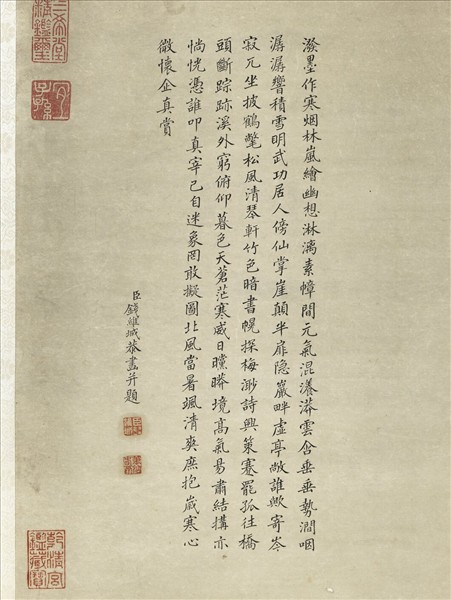 三希堂精鑑璽
宜子孫
潑墨作寒烟林嵐繪幽想淋漓素幛間元氣混瀁漭雲含垂垂勢澗咽
潺潺響積雪明武功居人傍仙掌崖顛半扉隐巖畔虛亭敞誰歟寄岑
寂兀坐披鶴氅松風清琴軒竹色暗書幌探梅渺詩興策蹇罷孤往橋
頭斷踪跡溪外窮俯仰暮色天蒼茫寒威日曭㬒境高氣易肅結搆亦
惝恍憑誰叩真宰已自迷象罔敢擬圖北風當暑颯清爽庶抱歲寒心
微懷企真賞
臣錢維城恭畫并題
乾清宮鑑藏寶